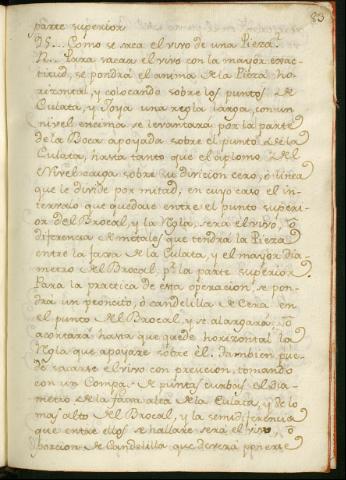 83
parte superior
25... Como se saca el vivo de una Pieza?
R... Para sacar el vivo con la mayor exac-
titud, se pondrá el anima de la Pieza ho-
rizontal, y colocando sobre los puntos de
Culata, y Joya una regla larga, con un
nivel encima se levantara por la parte
de la Boca apoyada sobre el punto de la
Culata, hasta tanto que el aplomo del
Nivel caiga sobre su division cero, ó linea
que le divide por mitad, en cuyo caso el in-
tervalo que quedase entre el punto superi-
or del Brocal, y la Regla, será el vivo, ó
diferencia de metales que tendrá la Pieza
entre la faxa de la Culata, y el mayor dia-
metro del Brocal pr. la parte superior.
Para la practica de esta operacion, se pon-
drá un peoncito, ó candelilla de Cera en
el punto del Brocal, y se alargará, ó
acortará hasta que quede horizontal la
Regla que apoyare sobre él. Tambien pue-
de sacarse el vivo con precision, tomando
con un Compas de puntas curbas el dia-
metro de la faxa alta de la Culata, y de lo
mas alto del Brocal, y la semidiferencia
que entre ellos se hallare será el vivo, ó
porcion de Candelilla que deverá ponerse